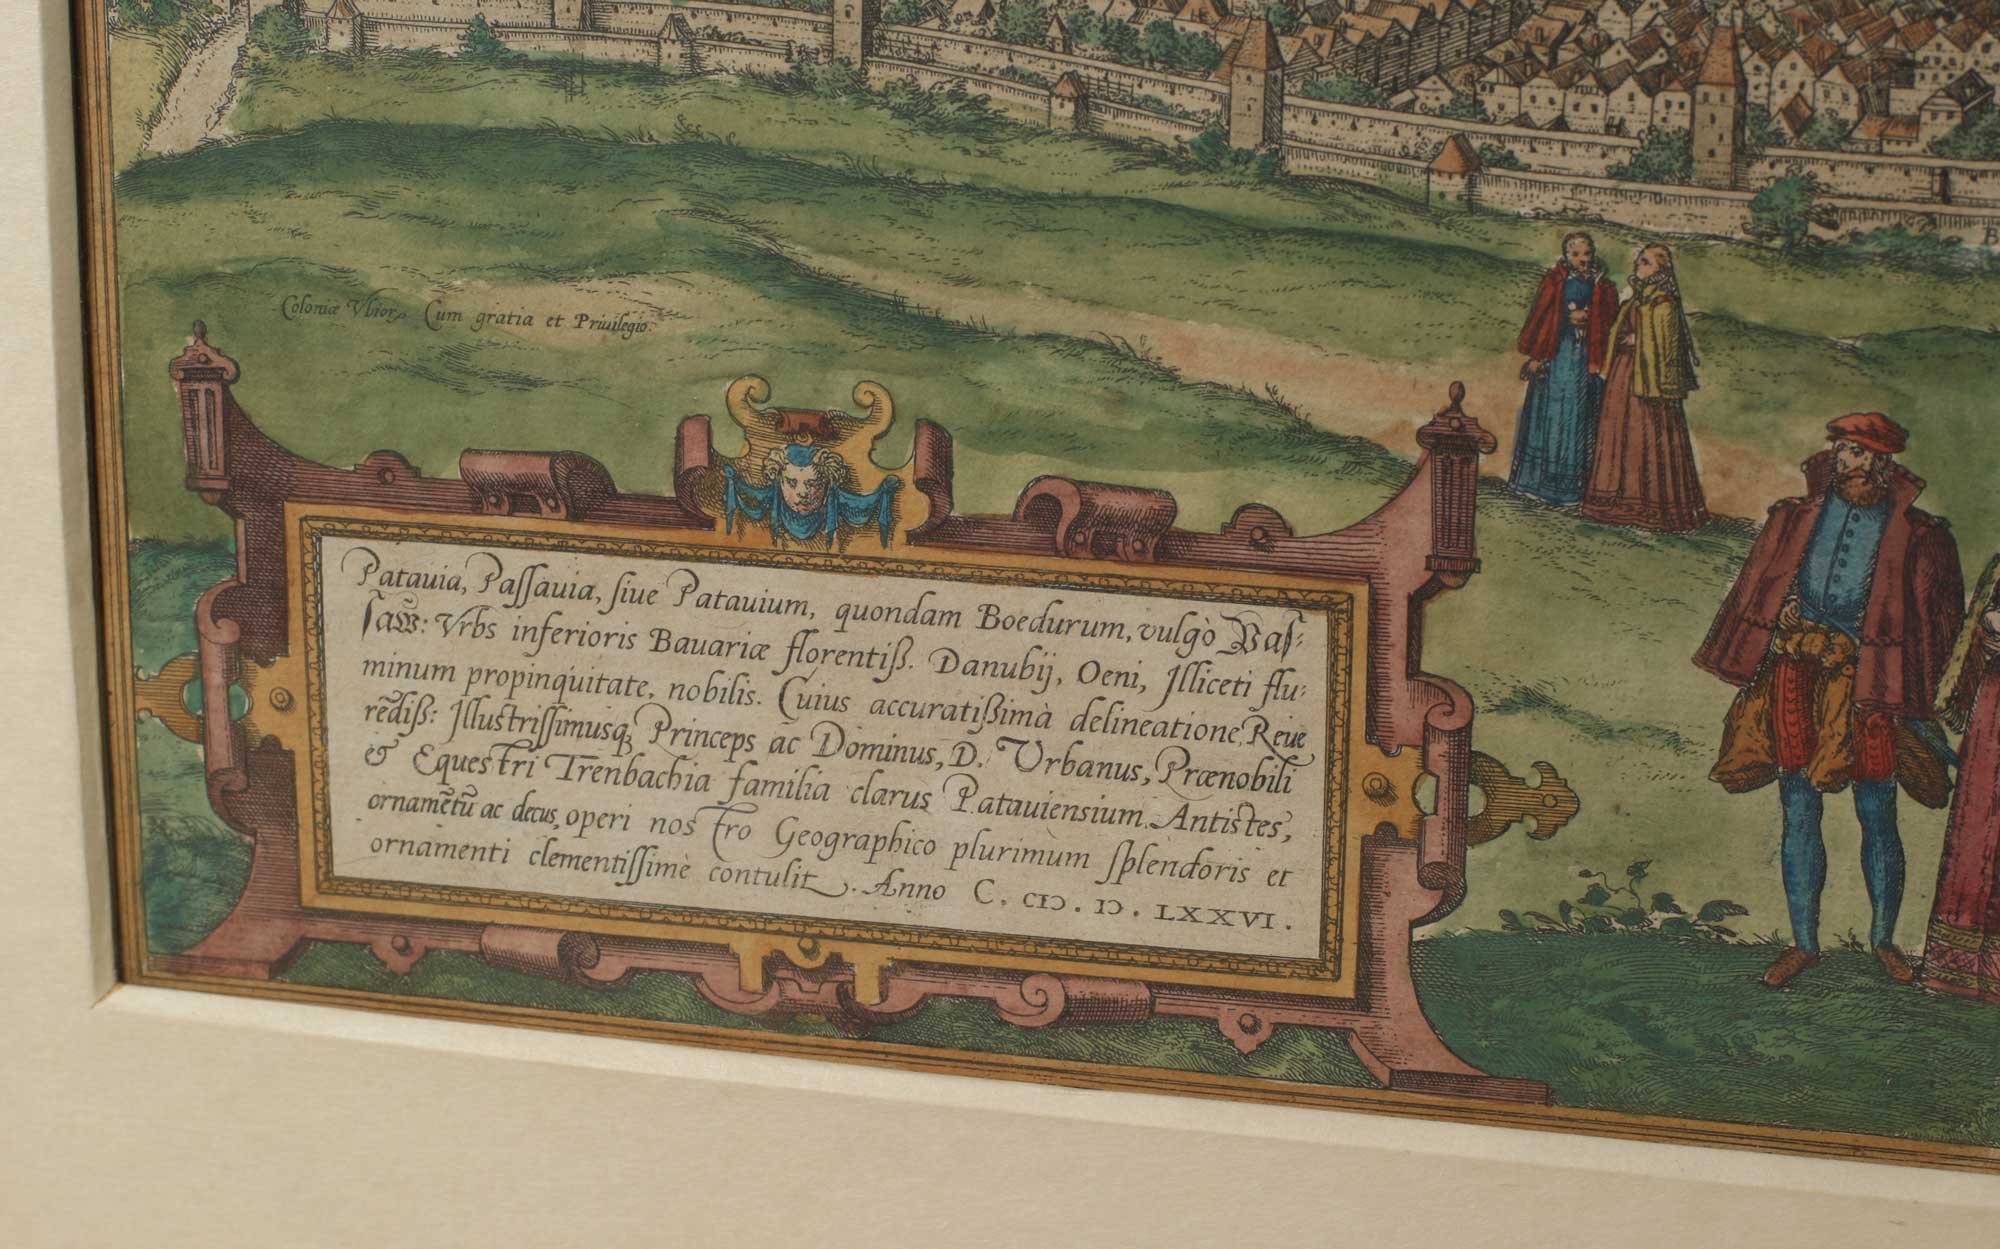 Coloniæ Vbior. Cum gratia et Priuilegio.
Patauia, Paſſauia, ſiue Patauium, quondam Boedurum, vulgò Paſ⸗
ſaw̃: Vrbs inferioris Bauariæ florentiß. Danubij, Oeni, Illiceti flu⸗
minum propinquitate, nobilis. Cuius accuratißimà delineatione, Reue
rẽdiß: Illustriſſimusq́ Princeps ac Dominus, D. Vrbanus, Prænobili
& Equestri Trenbachia familia clarus Patauiensium Antistes,
ornamẽtũ ac decus, operi nostro Geographico plurimùm ſplendoris et
ornamenti clementiſſimè contulit. Anno C. CIƆ. IƆ. LXXVI.
B